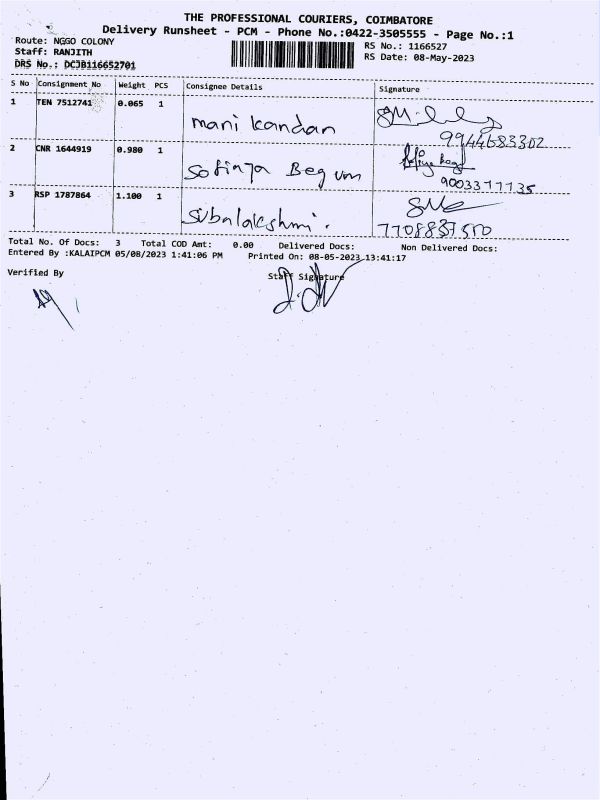 THE PROFESSIONAL COURIERS, COIMBATORE
Delivery Runsheet - PCM - Phone No.:0422-3505555 - Page No.:1
Route: NGGO COLONY
Staff: RANJITH
DRS No.: DCJB116652701
RS No.: 1166527
RS Date: 08-May-2023
S No Consignment No Weight PCS Consignee Details Signature
1 TEN 7512741 0.065 1 mani kandan
9944683302
2 CNR 1644919 0.980 1 Sofinja Begum
9003377735
3 RSP 1787864 1.100 1 Subalakshmi.
7708837550
Total No. Of Docs: 3 Total COD Amt: 0.00 Delivered Docs: Non Delivered Docs:
Entered By :KALAIPCM 05/08/2023 1:41:06 PM Printed On: 08-05-2023 13:41:17
Verified By Staff Signature